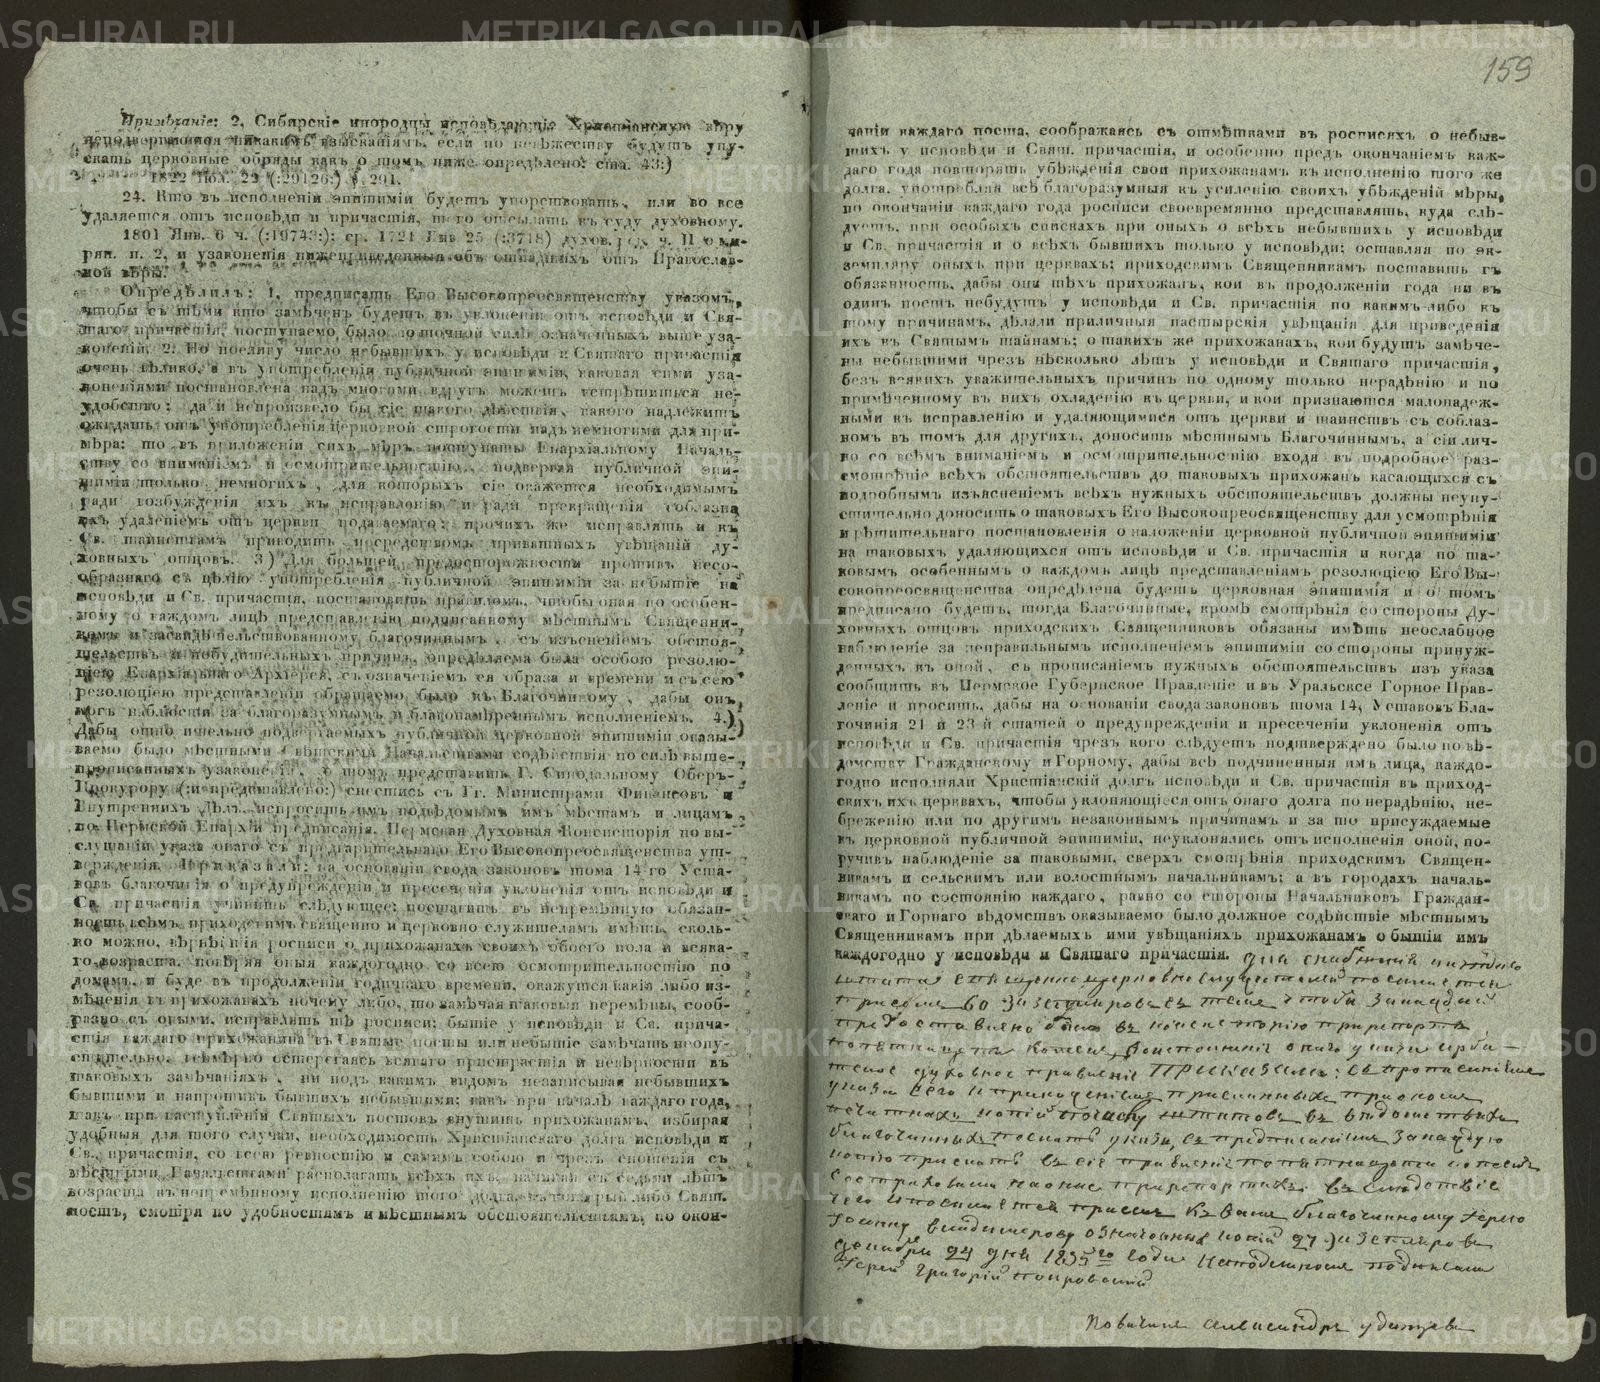 159
Примѣчаніе: 2, Сибирскіе инородцы исповѣдающіе Христіанскую вѣру
неподвергаются никакимъ взысканіямъ, если по невѣжеству будутъ упу-
скать церковные обряды какъ о томъ ниже опредѣлено: ста. 43:)
1822 Іюл. 22 (:29126:) §. 291.
24. Кто въ исполненіи эпитиміи будетъ упорствовать, или во все
удаляется отъ исповѣди и причастія, того отсылать къ суду духовному.
1801 Янв. 6 ч. (:19743:); ср. 1721 Янв 25 (:3718) духов. рег. ч. II о ми-
рян. п. 2, и узаконенія нижеприведенныя объ отпадшихъ отъ Православ-
ной вѣры.
Опредѣлилъ: 1, предписать Его Высокопреосвященству указомъ,
чтобы съ тѣми кто замѣченъ будетъ въ уклоненіи отъ исповѣди и Свя-
таго причастія, поступаемо было по точной силѣ означенныхъ выше уза-
коненій. 2. Но поелику число небывшихъ у исповѣди и Святаго причастія
очень велико, а въ употребленія публичной эпитиміи, каковая сими уза-
коненіями постановлена надъ многими вдругъ можетъ встрѣтиться не-
удобство: да и непроизвело бы сіе такого дѣйствія, какого надлежитъ
ожидать отъ употребленія церковной строгости надъ немногими для при-
мѣра: то въ приложеніи сихъ мѣръ поступать Епархіальному Началь-
ству со вниманіемъ и осмотрительностію, подвергая публичной эпи-
тиміи только немногихъ, для которыхъ сіе окажется необходимымъ
ради возбужденія ихъ къ исправленію и ради прекращенія соблазна
ихъ удаленіемъ отъ церкви подаваемаго; прочихъ же исправлять и къ
Св. таинствамъ приводить посредствомъ приватныхъ увѣщаній ду-
ховныхъ отцовъ. 3) Для большей предосторожности противъ несо-
образнаго съ цѣлію употребленія публичной эпитиміи за небытіе на
исповѣди и Св. причастія, постановить правиломъ, чтобы оная по особен-
ному о каждомъ лицѣ представленію подписанному мѣстнымъ Священни-
комъ и засвидѣтельствованному благочиннымъ, съ изъясненіемъ обстоя-
тельствъ и побудительныхъ причинъ, опредѣляема была особою резолю-
ціею Епархіальнаго Архіерея, съ означеніемъ ея образа и времени и съ сею
резолюціею представленіи обращаемо было къ Благочинному, дабы онъ
могъ наблюсти за благоразумнымъ и благонамѣреннымъ исполненіемъ. 4.)
Дабы относительно подвергаемыхъ публичной церковной эпитиміи оказы-
ваемо было мѣстными Свѣтскими Начальствами содѣйствія по силѣ выше-
прописанныхъ узаконеній, о томъ представить Г. Синодальному Оберъ-
Прокурору (:и представлено:) снестись съ Гг. Министрами Финансовъ и
Внутреннихъ Дѣлъ, испросить имъ подвѣдомымъ имъ мѣстамъ и лицамъ
по Пермской Епархіи предписанія. Пермская Духовная Консисторія по вы-
слушаніи указа онаго съ предварительнаго Его Высокопреосвященства ут-
вержденія. Приказали: на основаніи свода законовъ тома 14 го Уста-
вовъ благочинія о предупрежденіи и пресеченіи уклоненія отъ исповѣди и
Св. причастія учинить слѣдующее: поставить въ непремѣнную обязан-
ность всѣмъ приходскимъ священно и церковно служителямъ имѣть, сколь-
ко можно, вѣрнѣйшія росписи о прихожанахъ своихъ обоего пола и всяка-
го возраста, повѣряя оныя каждогодно со всею осмотрительностію по
домамъ, и буде въ продолженіи годичнаго времени, окажутся какія либо из-
мѣненія въ прихожанахъ почему либо, то замѣчая таковыя перемѣны, сооб-
разно съ оными, исправлять тѣ росписи; бытіе у исповѣди и Св. прича-
стія каждаго прихожанина въ Святые посты или небытіе замѣчать неопу-
стительно, всемѣрно остерегаясь всякаго пристрастія и невѣрности въ
таковыхъ замѣчаніяхъ, ни подъ какимъ видомъ незаписывая небывшихъ
бывшими и напротивъ бывшихъ небывшими; какъ при началѣ каждаго года,
такъ при наступленіи Святыхъ постовъ внушить прихожанамъ, избирая
удобныя для того случаи, необходимость Христіанскаго долга исповѣди и
Св. причастія, со всею ревностію и самимъ собою и чрезъ сношенія съ
мѣстными Начальствами располагать всѣхъ ихъ, начиная съ седьми лѣтъ
возраста къ непремѣнному исполненію того долга въ который либо Свят.
постъ, смотря по удобностямъ и мѣстнымъ обстоятельствамъ, по окон-
чаніи каждаго поста, соображаясь съ отмѣтками въ росписяхъ о небыв-
шихъ у исповѣди и Свят. причастія, и особенно предъ окончаніемъ каж-
даго года повторять убѣжденія свои прихожанамъ къ исполненію того же
долга, употребляя всѣ благоразумныя къ усиленію своихъ убѣжденій мѣры,
по окончаніи каждаго года росписи своевремянно представлять, куда слѣ-
дуетъ, при особыхъ спискахъ при оныхъ о всѣхъ небывшихъ у исповѣди
и Св. причастія и о всѣхъ бывшихъ только у исповѣди; оставляя по эк-
земпляру оныхъ при церквахъ; приходскимъ Священникамъ поставить въ
обязанность, дабы они тѣхъ прихожанъ, кои въ продолженіи года ни въ
одинъ постъ небудутъ у исповѣди и Св. причастія по какимъ-либо къ
тому причинамъ, дѣлали приличныя пастырскія увѣщанія для приведенія
ихъ къ Святымъ тайнамъ; о такихъ же прихожанахъ, кои будутъ замѣче-
ны небывшими чрезъ нѣсколько лѣтъ у исповѣди и Святаго причастія,
безъ всякихъ уважительныхъ причинъ по одному только нерадѣнію и по
примѣченному въ нихъ охладенію къ церкви, и кои признаются малонадеж-
ными къ исправленію и удаляющимися отъ церкви и таинствъ съ соблаз-
номъ въ томъ для другихъ, доносить мѣстнымъ Благочиннымъ, а сіи лич-
но со всѣмъ вниманіемъ и осмотрительностію входя въ подробное раз-
смотрѣніе всѣхъ обстоятельствъ до таковыхъ прихожанъ касающихся съ
подробнымъ изъясненіемъ всѣхъ нужныхъ обстоятельствъ должны неупу-
стительно доносить о таковыхъ Его Высокопреосвященству для усмотрѣнія
и рѣшительнаго постановленія о наложеніи церковной публичной эпитиміи
на таковыхъ удаляющихся отъ исповѣди и Св. причастія и когда по та-
ковымъ особеннымъ о каждомъ лицѣ представленіямъ резолюціею Его Вы-
сокопреосвященства опредѣлена будетъ церковная эпитимія и о томъ
предписано будетъ, тогда Благочинные, кромѣ смотрѣнія со стороны Ду-
ховныхъ отцовъ приходскихъ Священниковъ обязаны имѣть неослабное
наблюденіе за неправильнымъ исполненіемъ эпитиміи со стороны принуж-
денныхъ къ оной, съ прописаніемъ нужныхъ обстоятельствъ изъ указа
сообщить въ Пермское Губернское Правленіе и въ Уральское Горное Прав-
леніе и просить, дабы на основаніи свода законовъ тома 14, Уставовъ Бла-
гочинія 21 и 23-й статей о предупрежденіи и пресеченіи уклоненія отъ
исповѣди и Св. причастія чрезъ кого слѣдуетъ подтверждено было по вѣ-
домству Гражданскому и Горному, дабы всѣ подчиненныя имъ лица, каждо-
годно исполняли Христіанскій долгъ исповѣди и Св. причастія въ приход-
скихъ ихъ церквахъ, чтобы уклоняющіеся отъ онаго долга по нерадѣнію, не-
бреженію или по другимъ незаконнымъ причинамъ и за то присуждаемые
къ церковной публичной эпитиміи, неуклонялись отъ исполненія оной, по-
ручивъ наблюденіе за таковыми, сверхъ смотрѣнія приходскимъ Священ-
никамъ и сельскимъ или волостнымъ начальникамъ; а въ городахъ началь-
никамъ по состоянію каждаго, равно со стороны Начальниковъ Граждан-
скаго и Горнаго вѣдомствъ оказываемо было должное содѣйствіе мѣстнымъ
Священникамъ при дѣлаемыхъ ими увѣщаніяхъ прихожанамъ о бытіи имъ
каждогодно у исповѣди и Святаго причастія. для снабженія каждаго
штата священноцерковнослужителей
при семъ 60 экземпляровъ съ тѣмъ чтобы за каждый
предоставлено было въ консисторію при репортѣ
по пятнадцати копеекъ,
духовное правленіе Приказали: съ прописаніемъ
указа сего и приложеніемъ присланныхъ при ономъ
печатныхъ копій
благочиннымъ послать указы, съ предписаніемъ за каждую
копію прислать въ сіе правленіе по пятнадцати копеекъ
при репортахъ,
благочинному Іерею
Іоанну означенныхъ копій 27 экземпляровъ
декабря 24 дня 1835го года На подлинномъ подписали
Іерей Григорій Покровскій
Повытчикъ Александръ Удинцевъ